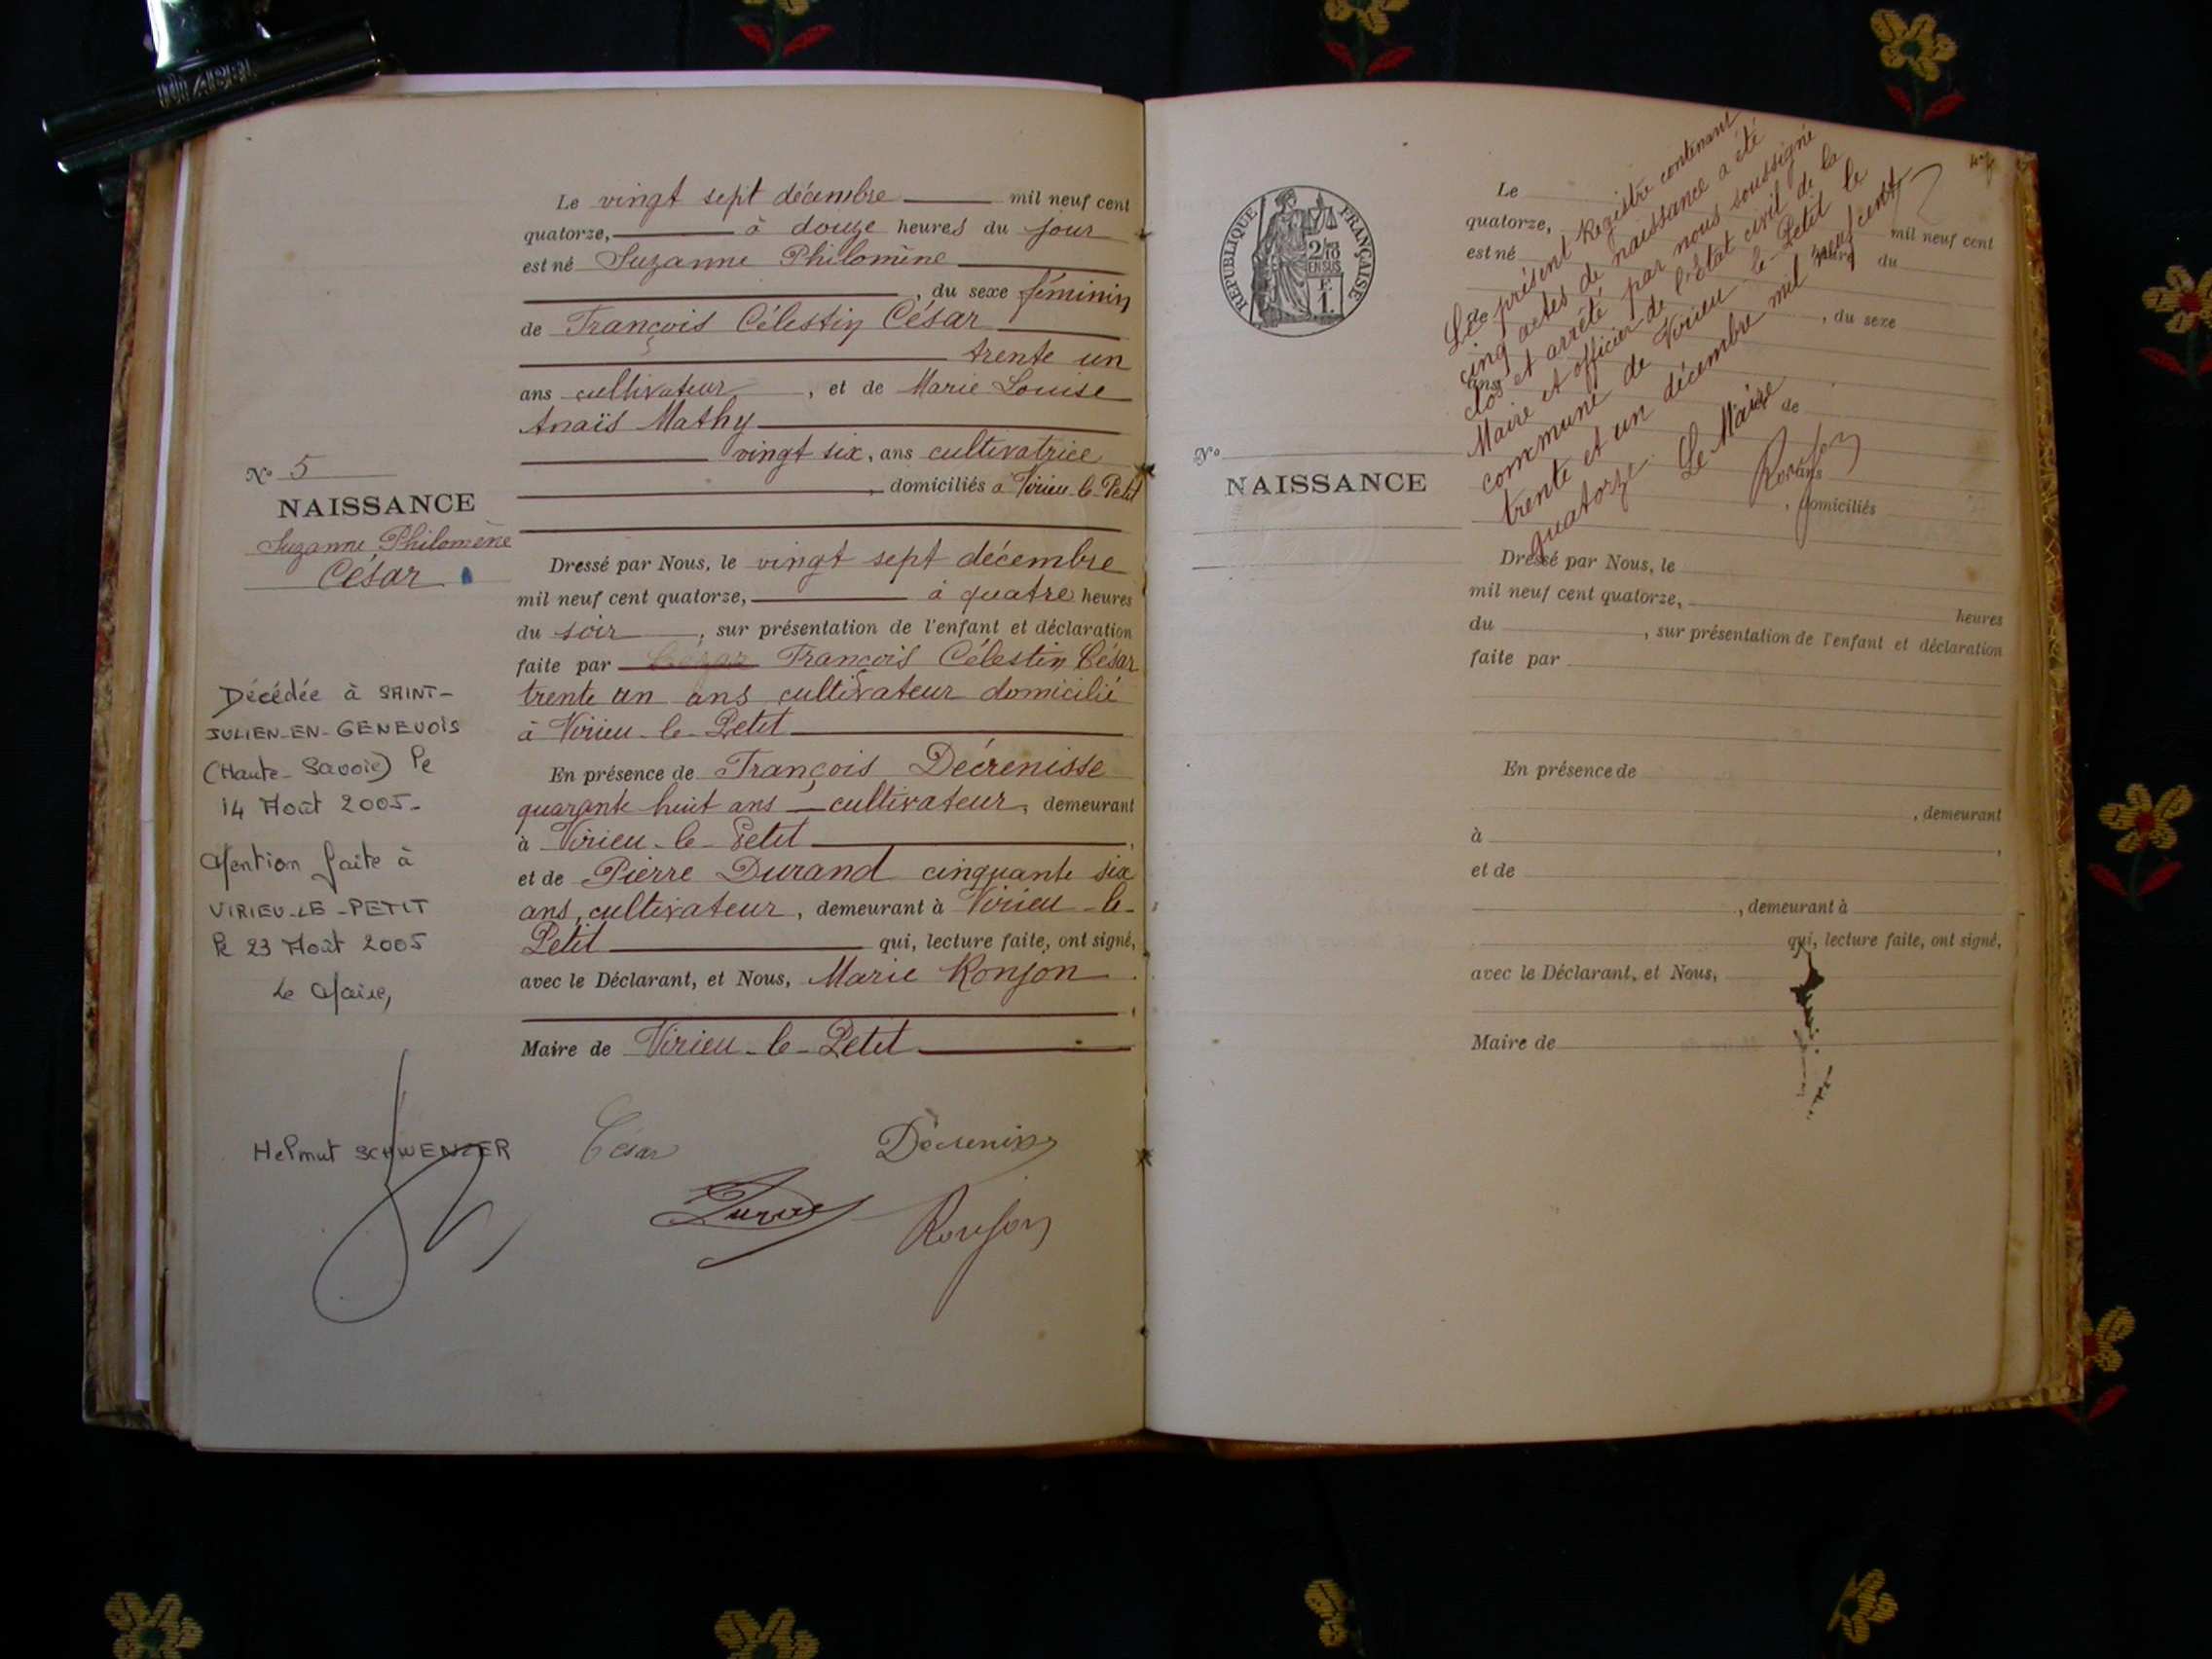 N° 5
NAISSANCE
Suzanne Philomène
César
Décédée à SAINT-
JULIEN-EN-GENEVOIS
(Haute-Savoie) le
14 Août 2005-
Mention faite à
VIRIEU-LE-PETIT
le 23 Août 2005
Le Maire,
Helmut SCHWENZER
Le vingt sept décembre mil neuf cent
quatorze, à douze heures du jour
est né Suzanne Philomène
, du sexe féminin
de François Célestin César
trente un
ans cultivateur, et de Marie Louise
Anaïs Mathy
vingt six, ans cultivatrice
, domiciliés à Virieu-le-Petit
Dressé par Nous, le vingt sept décembre
mil neuf cent quatorze, à quatre heures
du soir, sur présentation de l'enfant et déclaration
faite par François Célestin César
trente un ans cultivateur domicilié
à Virieu-le-Petit
En présence de François Décrenisse
quarante huit ans cultivateur, demeurant
à Virieu-le-Petit,
et de Pierre Durand cinquante six
ans, cultivateur, demeurant à Virieu-le-
Petit qui, lecture faite, ont signé,
avec le Déclarant, et Nous, Marie Ronjon
Maire de Virieu-le-Petit
César
Décrenisse
Durand
Ronjon
REPUBLIQUE FRANÇAISE
2/10
EN SUS
F
1.
N°
NAISSANCE
Le présent Registre contenant
cinq actes de naissance a été
clos et arrêté par nous soussigné
Maire et officier de l'Etat civil de la
commune de Virieu-le-Petit le
trente et un décembre mil neuf cent
quatorze. Le Maire
Ronjon
Le mil neuf cent
quatorze, heure du
est né
, du sexe
de
ans
de
ans
, domiciliés
Dressé par Nous, le
mil neuf cent quatorze, heures
du , sur présentation de l'enfant et déclaration
faite par
En présence de
, demeurant
à ,
et de
, demeurant à
qui, lecture faite, ont signé,
avec le Déclarant, et Nous,
Maire de